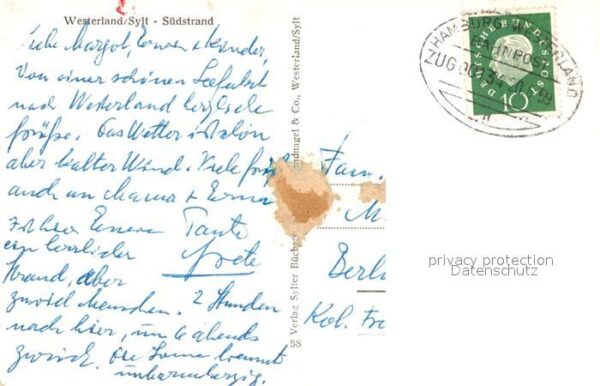 Westerland/Sylt - Südstrand
Liebe Margot, Erwin + Kinder,
Von einer schönen Seefahrt
nach Westerland herzliche
Grüße. Das Wetter ist schön
aber kalter Wind. Viele
auch an Mama + Erna
Eurer Tante
ein herrlicher Grete
Strand, aber
zuviel Menschen. 2 Stunden
nach hier, um 6 abends
zurück. Die Sonne brennt
unbarmherzig.
& Co., Westerland/Sylt
Verlag Sylter Bücher
58
HAMBURG
BAHNPOST
ZUG
DEUTSCHE BUNDESPOST
10
Fam.
M
Berlin
Kol. Fr
privacy protection
Datenschutz